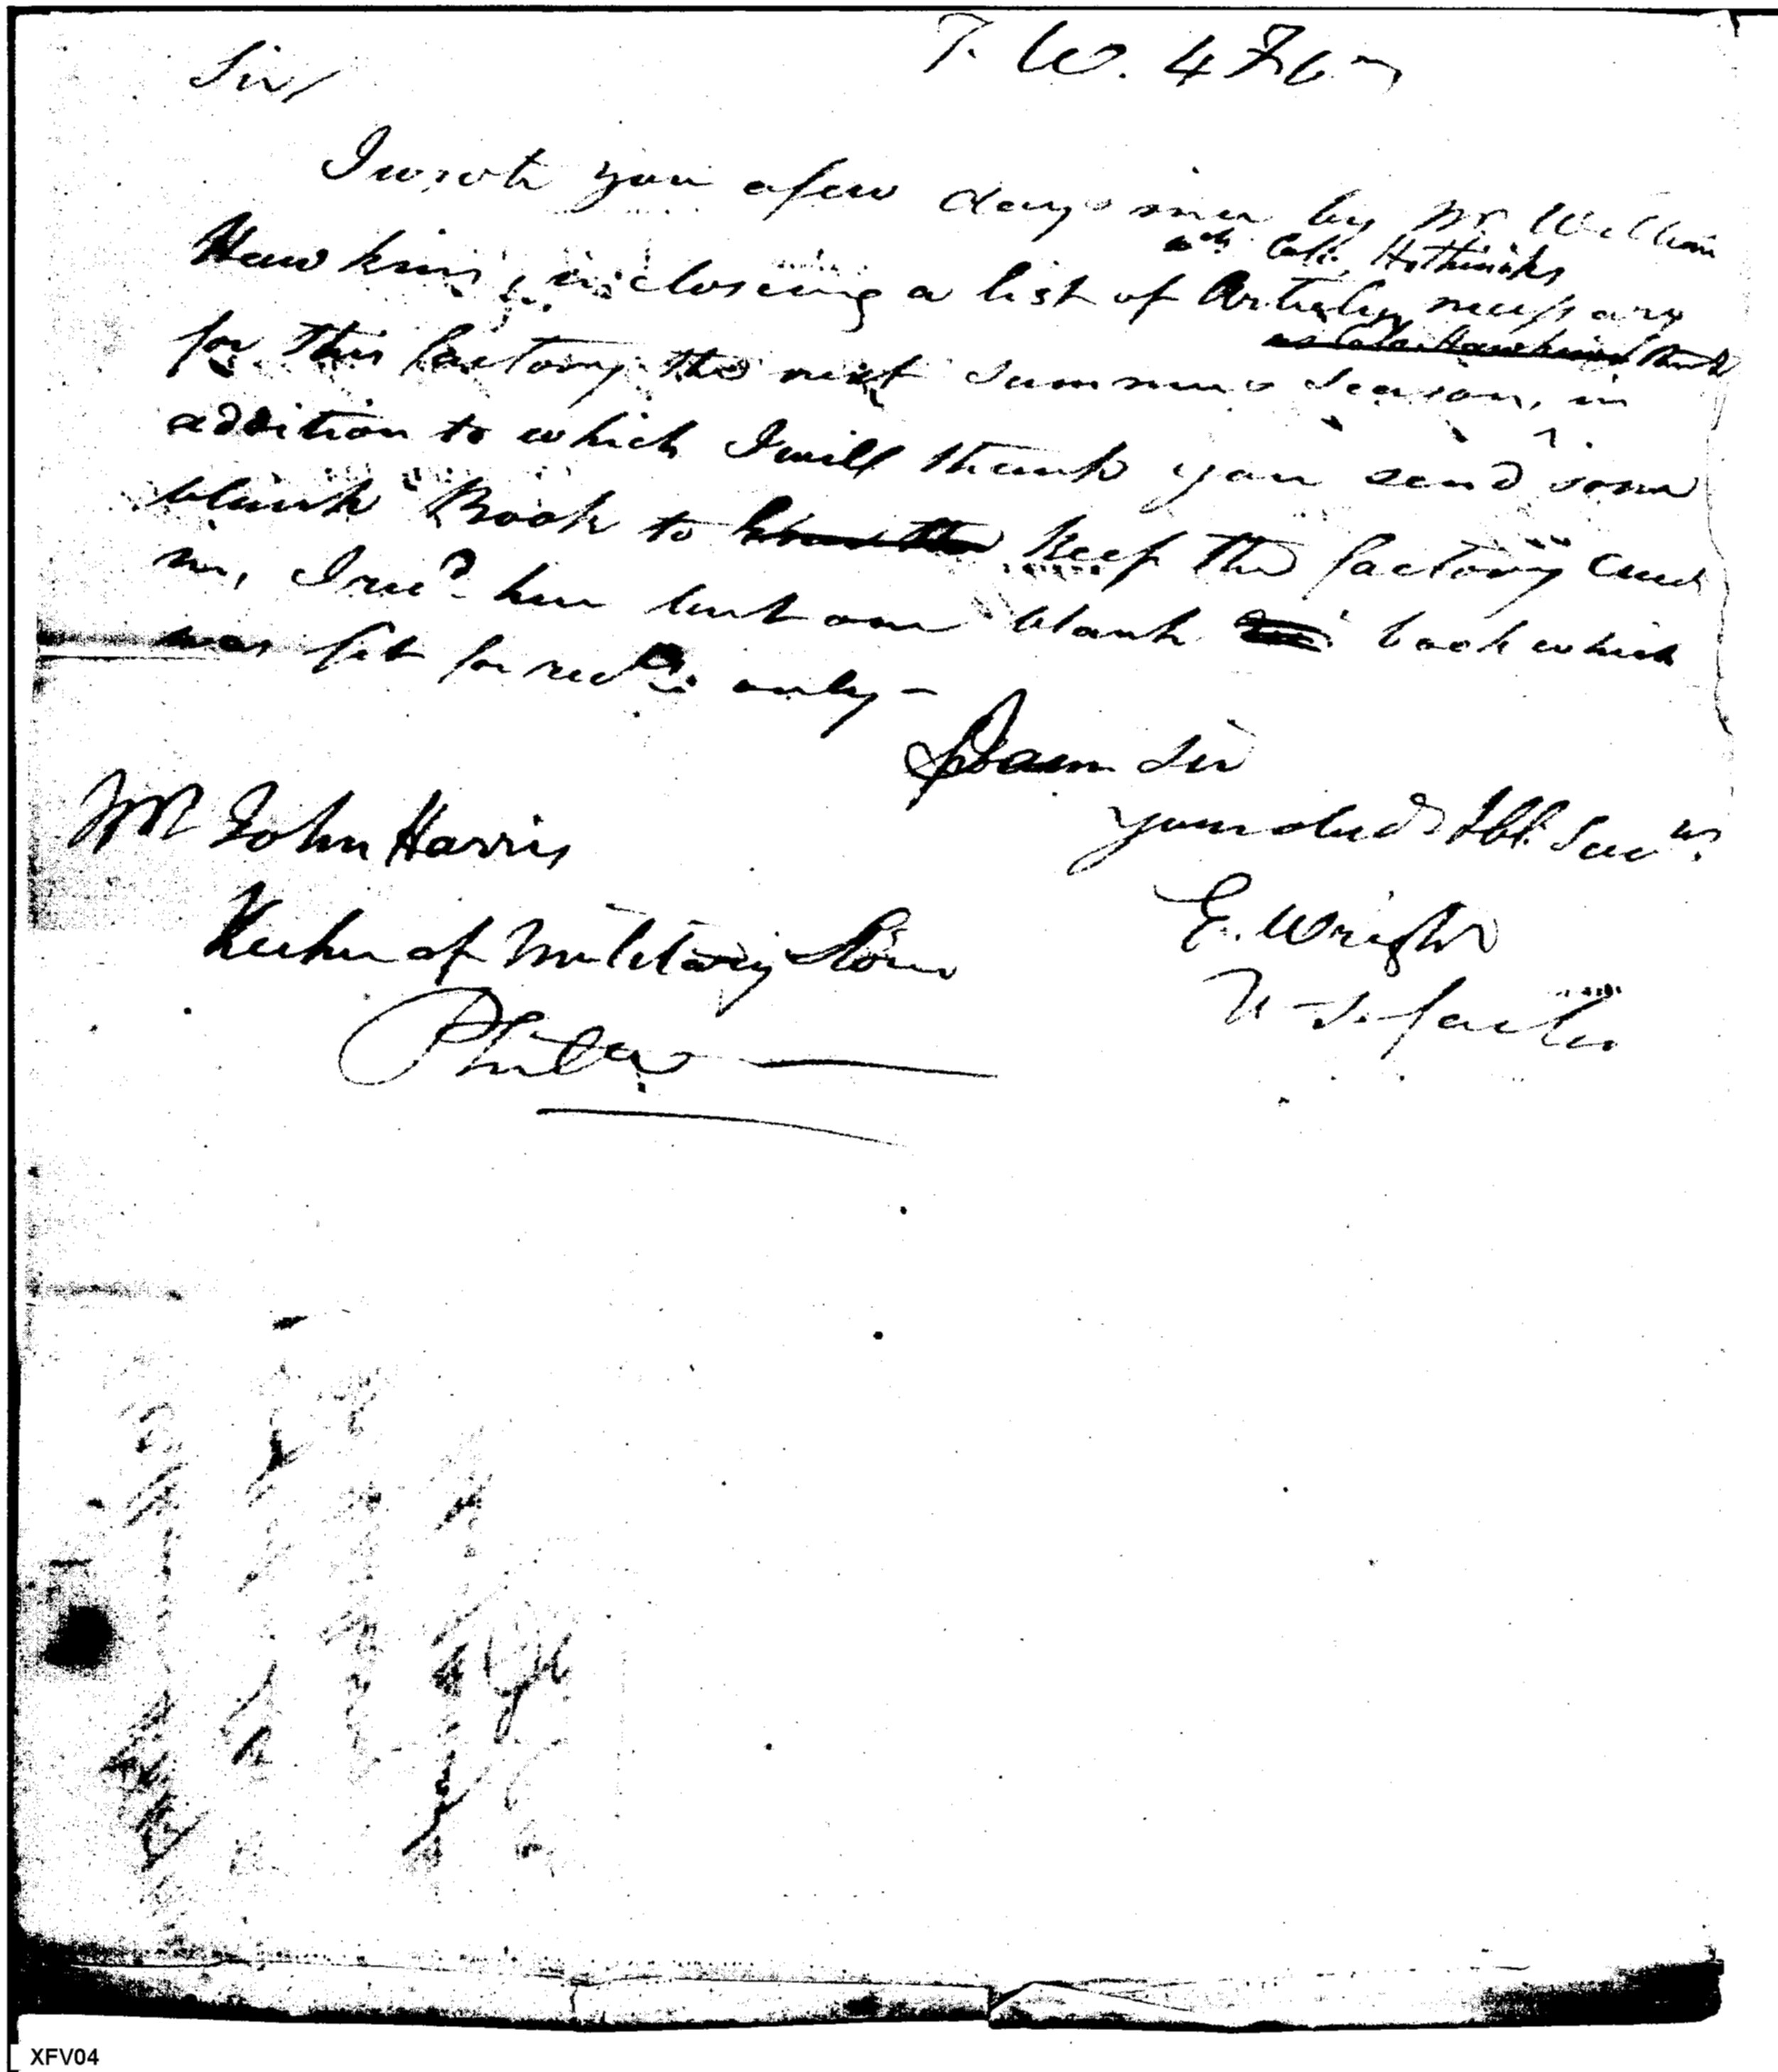 T. W. 4 Feb
Sir/
I wrote you a few days since by Mr William
Col. Hothinks
Hawkins, inclosing a list of Articles necessary
as Colo. Hawkins think
for this factory the next summer season, in
addition to which I will thank you send some
blank Book to keep the factory accts
in, I recd. here but one blank book which
was fit for only -
I am Sir
your obedt Hbl. Servt.
Mr John Harris
E. Wright
Keeper of Military Stores
U. S. factor
Philda
XFV04